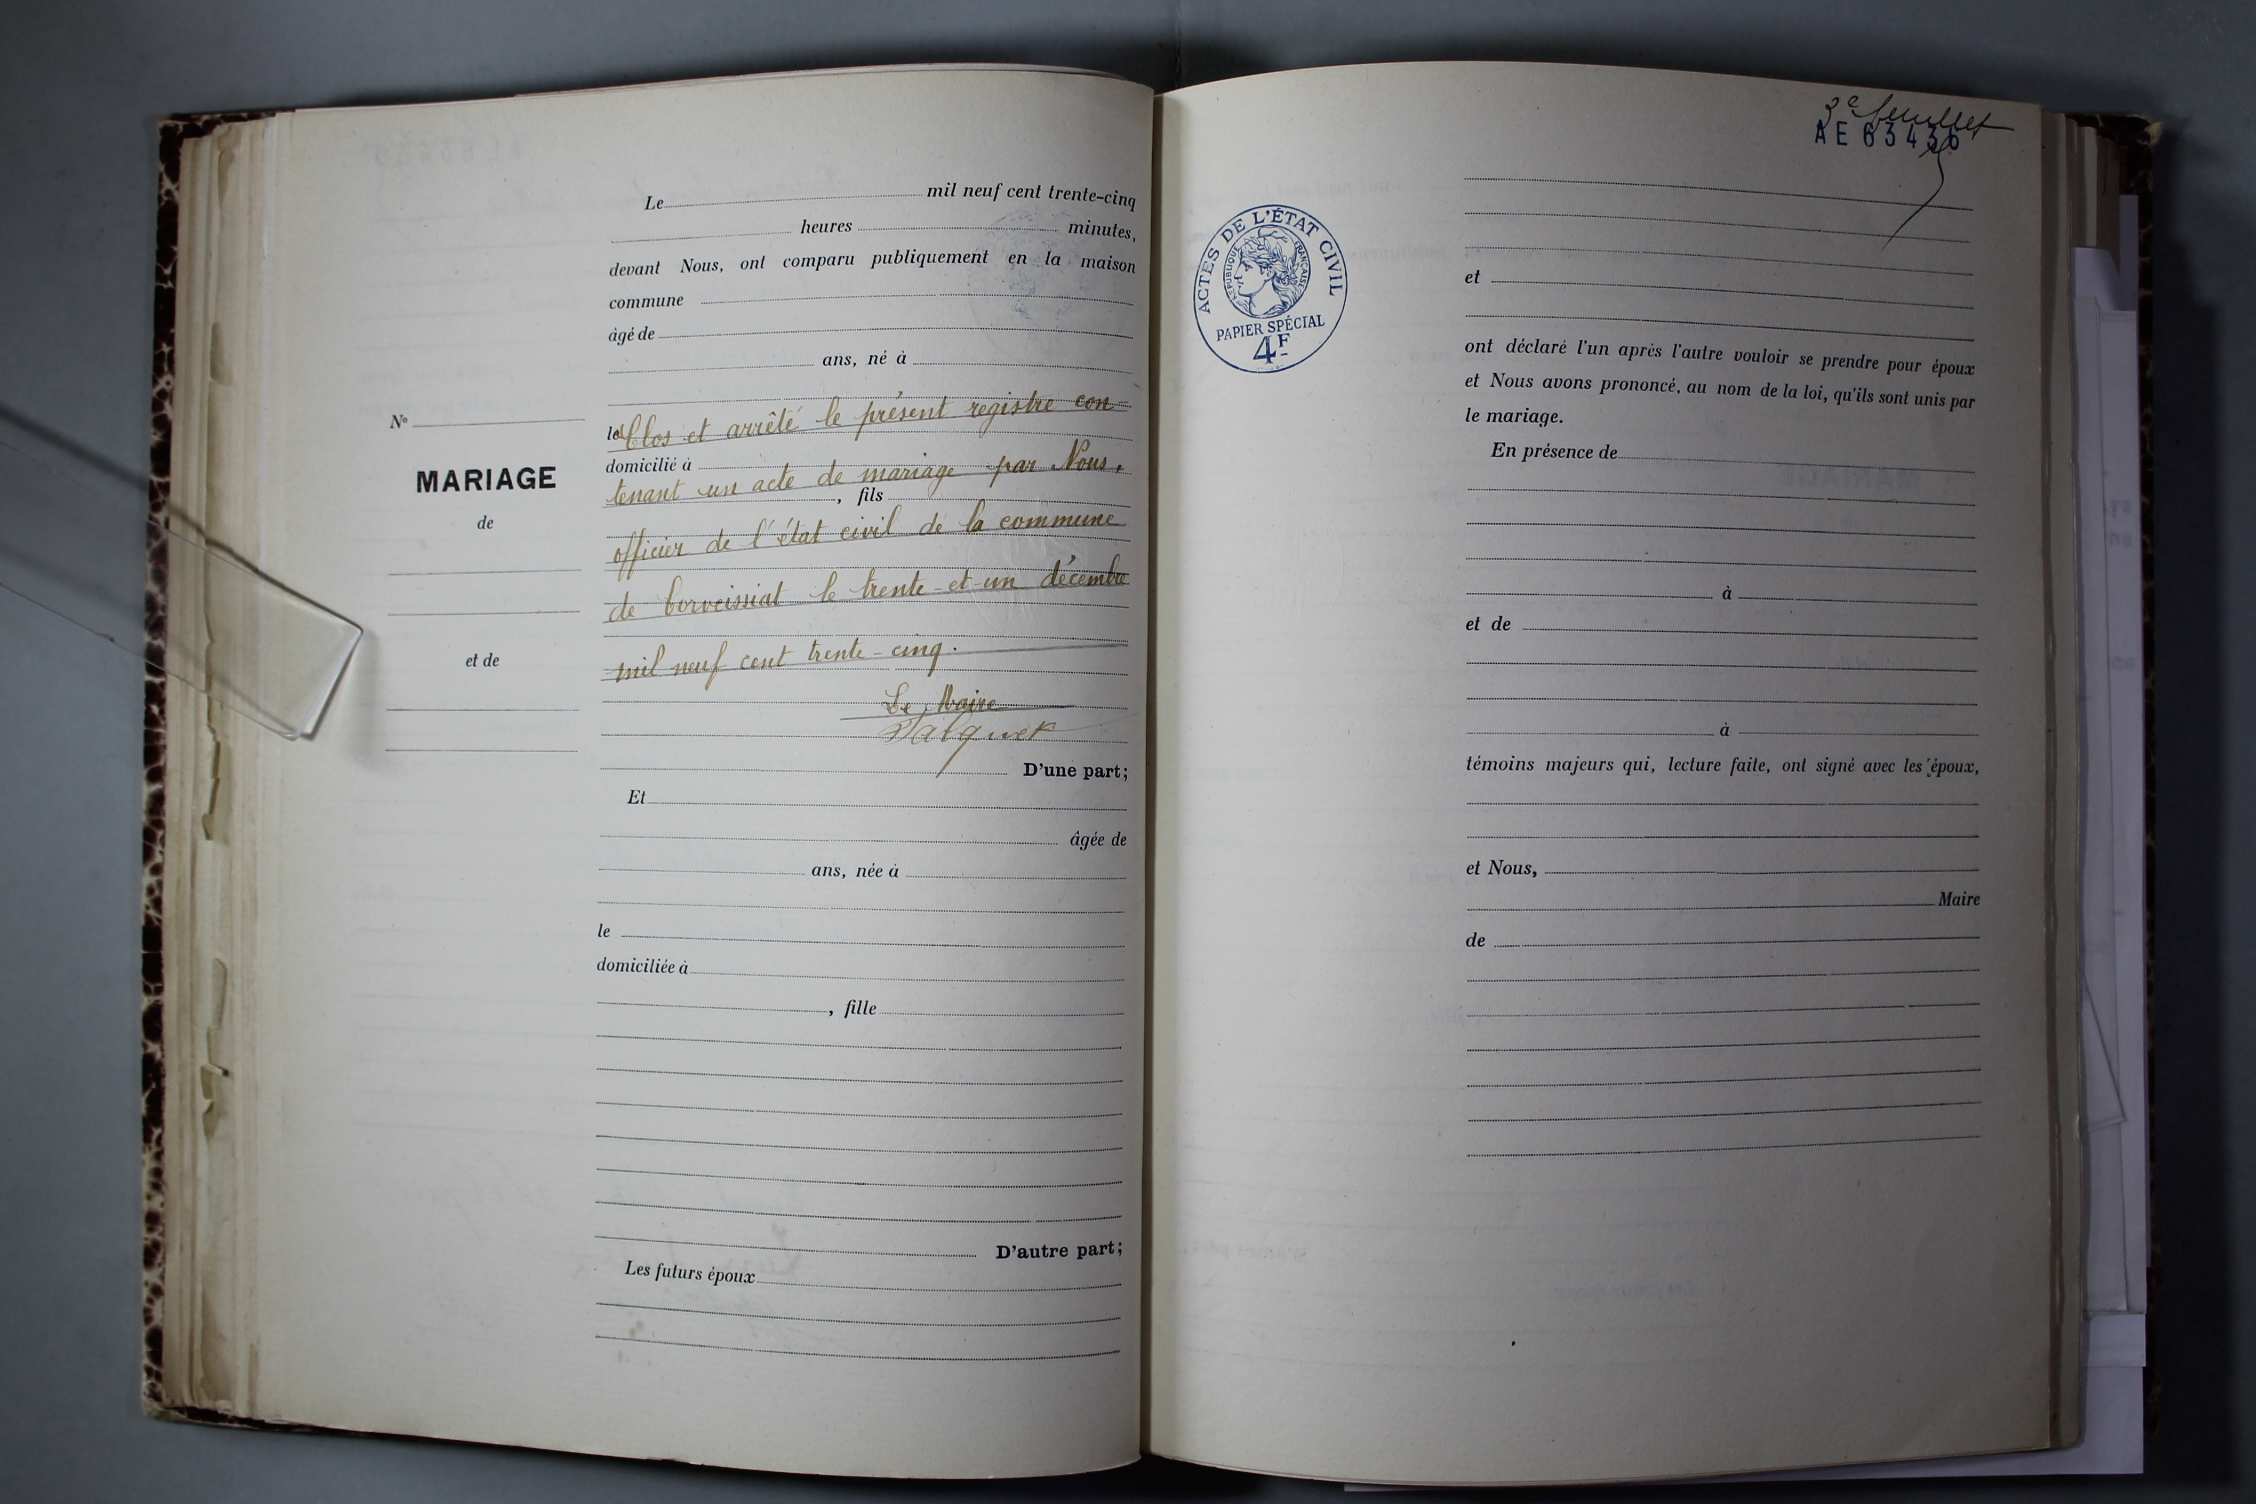 Le mil neuf cent trente-cinq
heures minutes,
devant Nous, ont comparu publiquement en la maison
commune
âgé de
ans, né à
le
Clos et arrêté le présent registre con-
domicilié à
tenant un acte de mariage par Nous,
, fils
officier de l'état civil de la commune
de Corveissiat le trente-et-un décembre
mil neuf cent trente-cinq.
Le Maire
D'une part;
Et
âgée de
ans, née à
le
domiciliée à
, fille
D'autre part;
Les futurs époux
No
MARIAGE
de
et de
3e feuillet
AE 63436
ACTES DE L'ÉTAT CIVIL
RÉPUBLIQUE FRANÇAISE
PAPIER SPÉCIAL
4F
et
ont déclaré l'un après l'autre vouloir se prendre pour époux
et Nous avons prononcé, au nom de la loi, qu'ils sont unis par
le mariage.
En présence de
à
et de
à
témoins majeurs qui, lecture faite, ont signé avec les époux,
et Nous,
Maire
de